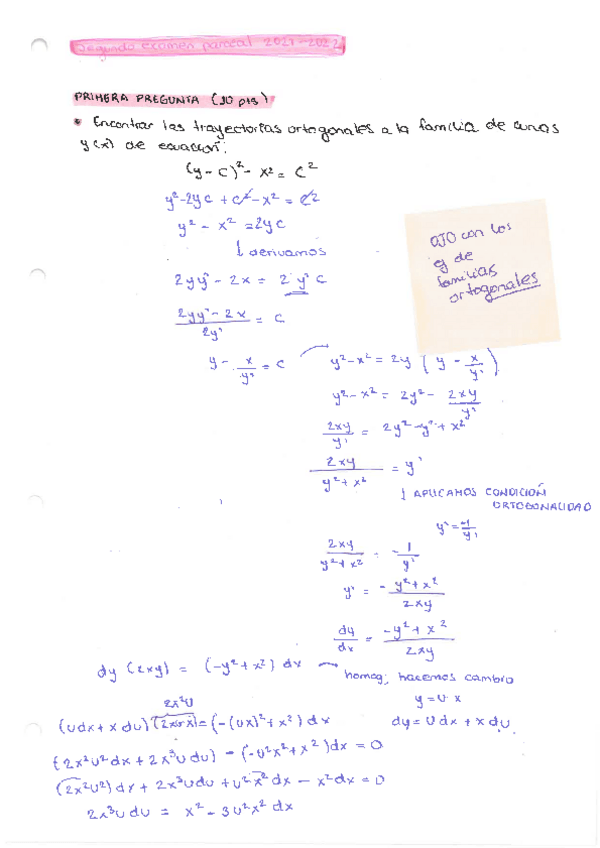 Segundo examen parcial 2021-2022
PRIMERA PREGUNTA (10 pts)
• Encontrar las trayectorias ortogonales a la familia de curvas
y(x) de ecuación:
(y - c)² - x² = c²
y² - 2yc + c² - x² = c²
y² - x² = 2yc
↓ derivamos
2yy' - 2x = 2 y' c
(2yy' - 2x)/(2y') = c
y - x/y' = c
OJO con los
ej de
familias
ortogonales
y² - x² = 2y (y - x/y')
y² - x² = 2y² - 2xy/y'
2xy/y' = 2y² - y² + x²
2xy/(y² + x²) = y'
↓ APLICAMOS CONDICIÓN
ORTOGONALIDAD
y' = -1/y'
2xy/(y² + x²) = -1/y'
y' = - (y² + x²)/(2xy)
dy/dx = (-y² + x²)/(2xy)
dy (2xy) = (-y² + x²) dx → homog; hacemos cambio
y = u x
dy = u dx + x du
2x²u
(u dx + x du) (2xux) = (-(ux)² + x²) dx
(2x²u² dx + 2x³u du) - (-u²x² + x²) dx = 0
(2x²u²) dx + 2x³u du + u²x² dx - x² dx = 0
2x³u du = x² - 3u²x² dx